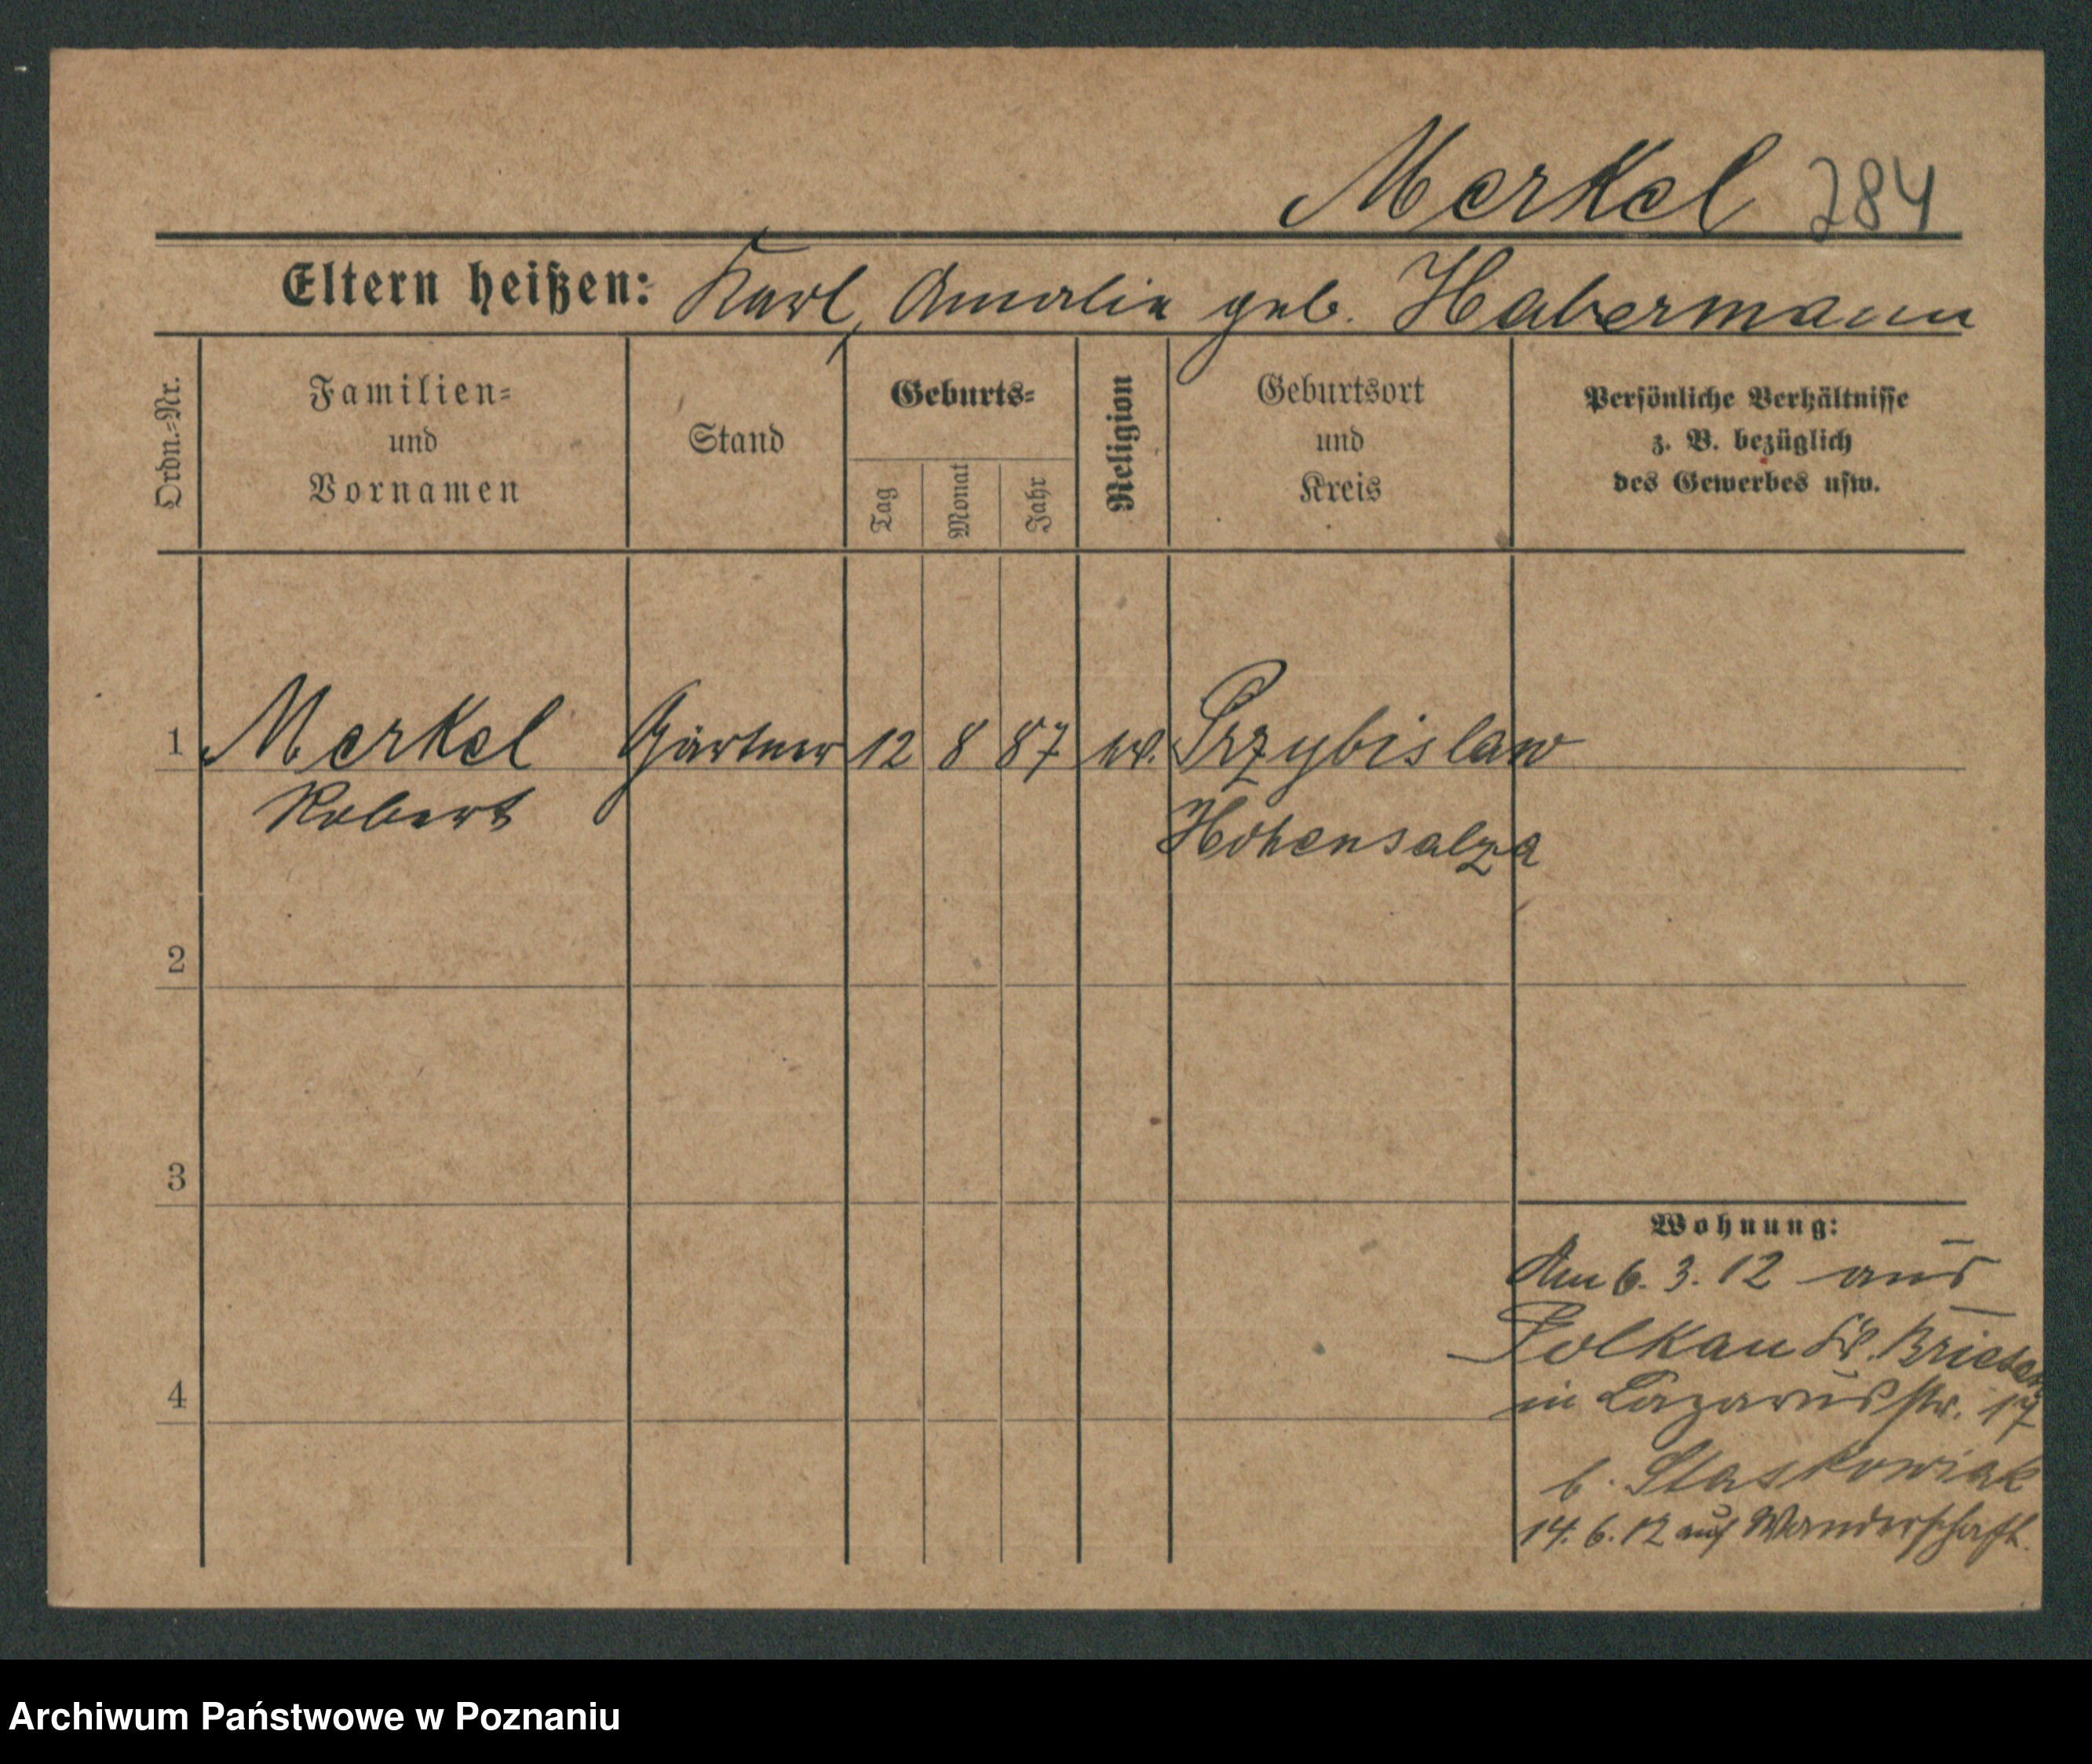 Merkel 284
Eltern heißen: Karl, Amalie geb. Habermann
Ordn.-Nr.
Familien-
und
Vornamen
Stand
Geburts-
Tag
Monat
Jahr
Religion
Geburtsort
und
Kreis
Persönliche Verhältnisse
z. B. bezüglich
des Gewerbes usw.
1 Merkel Gärtner 12 8 87 ev. Przybislaw
Robert Hohensalza
2
3
Wohnung:
Am 6. 3. 12 aus
Polkau Kr. Briesen
4
in Lazarusstr. 17
b. Staskowiak
14. 6. 12 auf Wanderschaft.
Archiwum Państwowe w Poznaniu